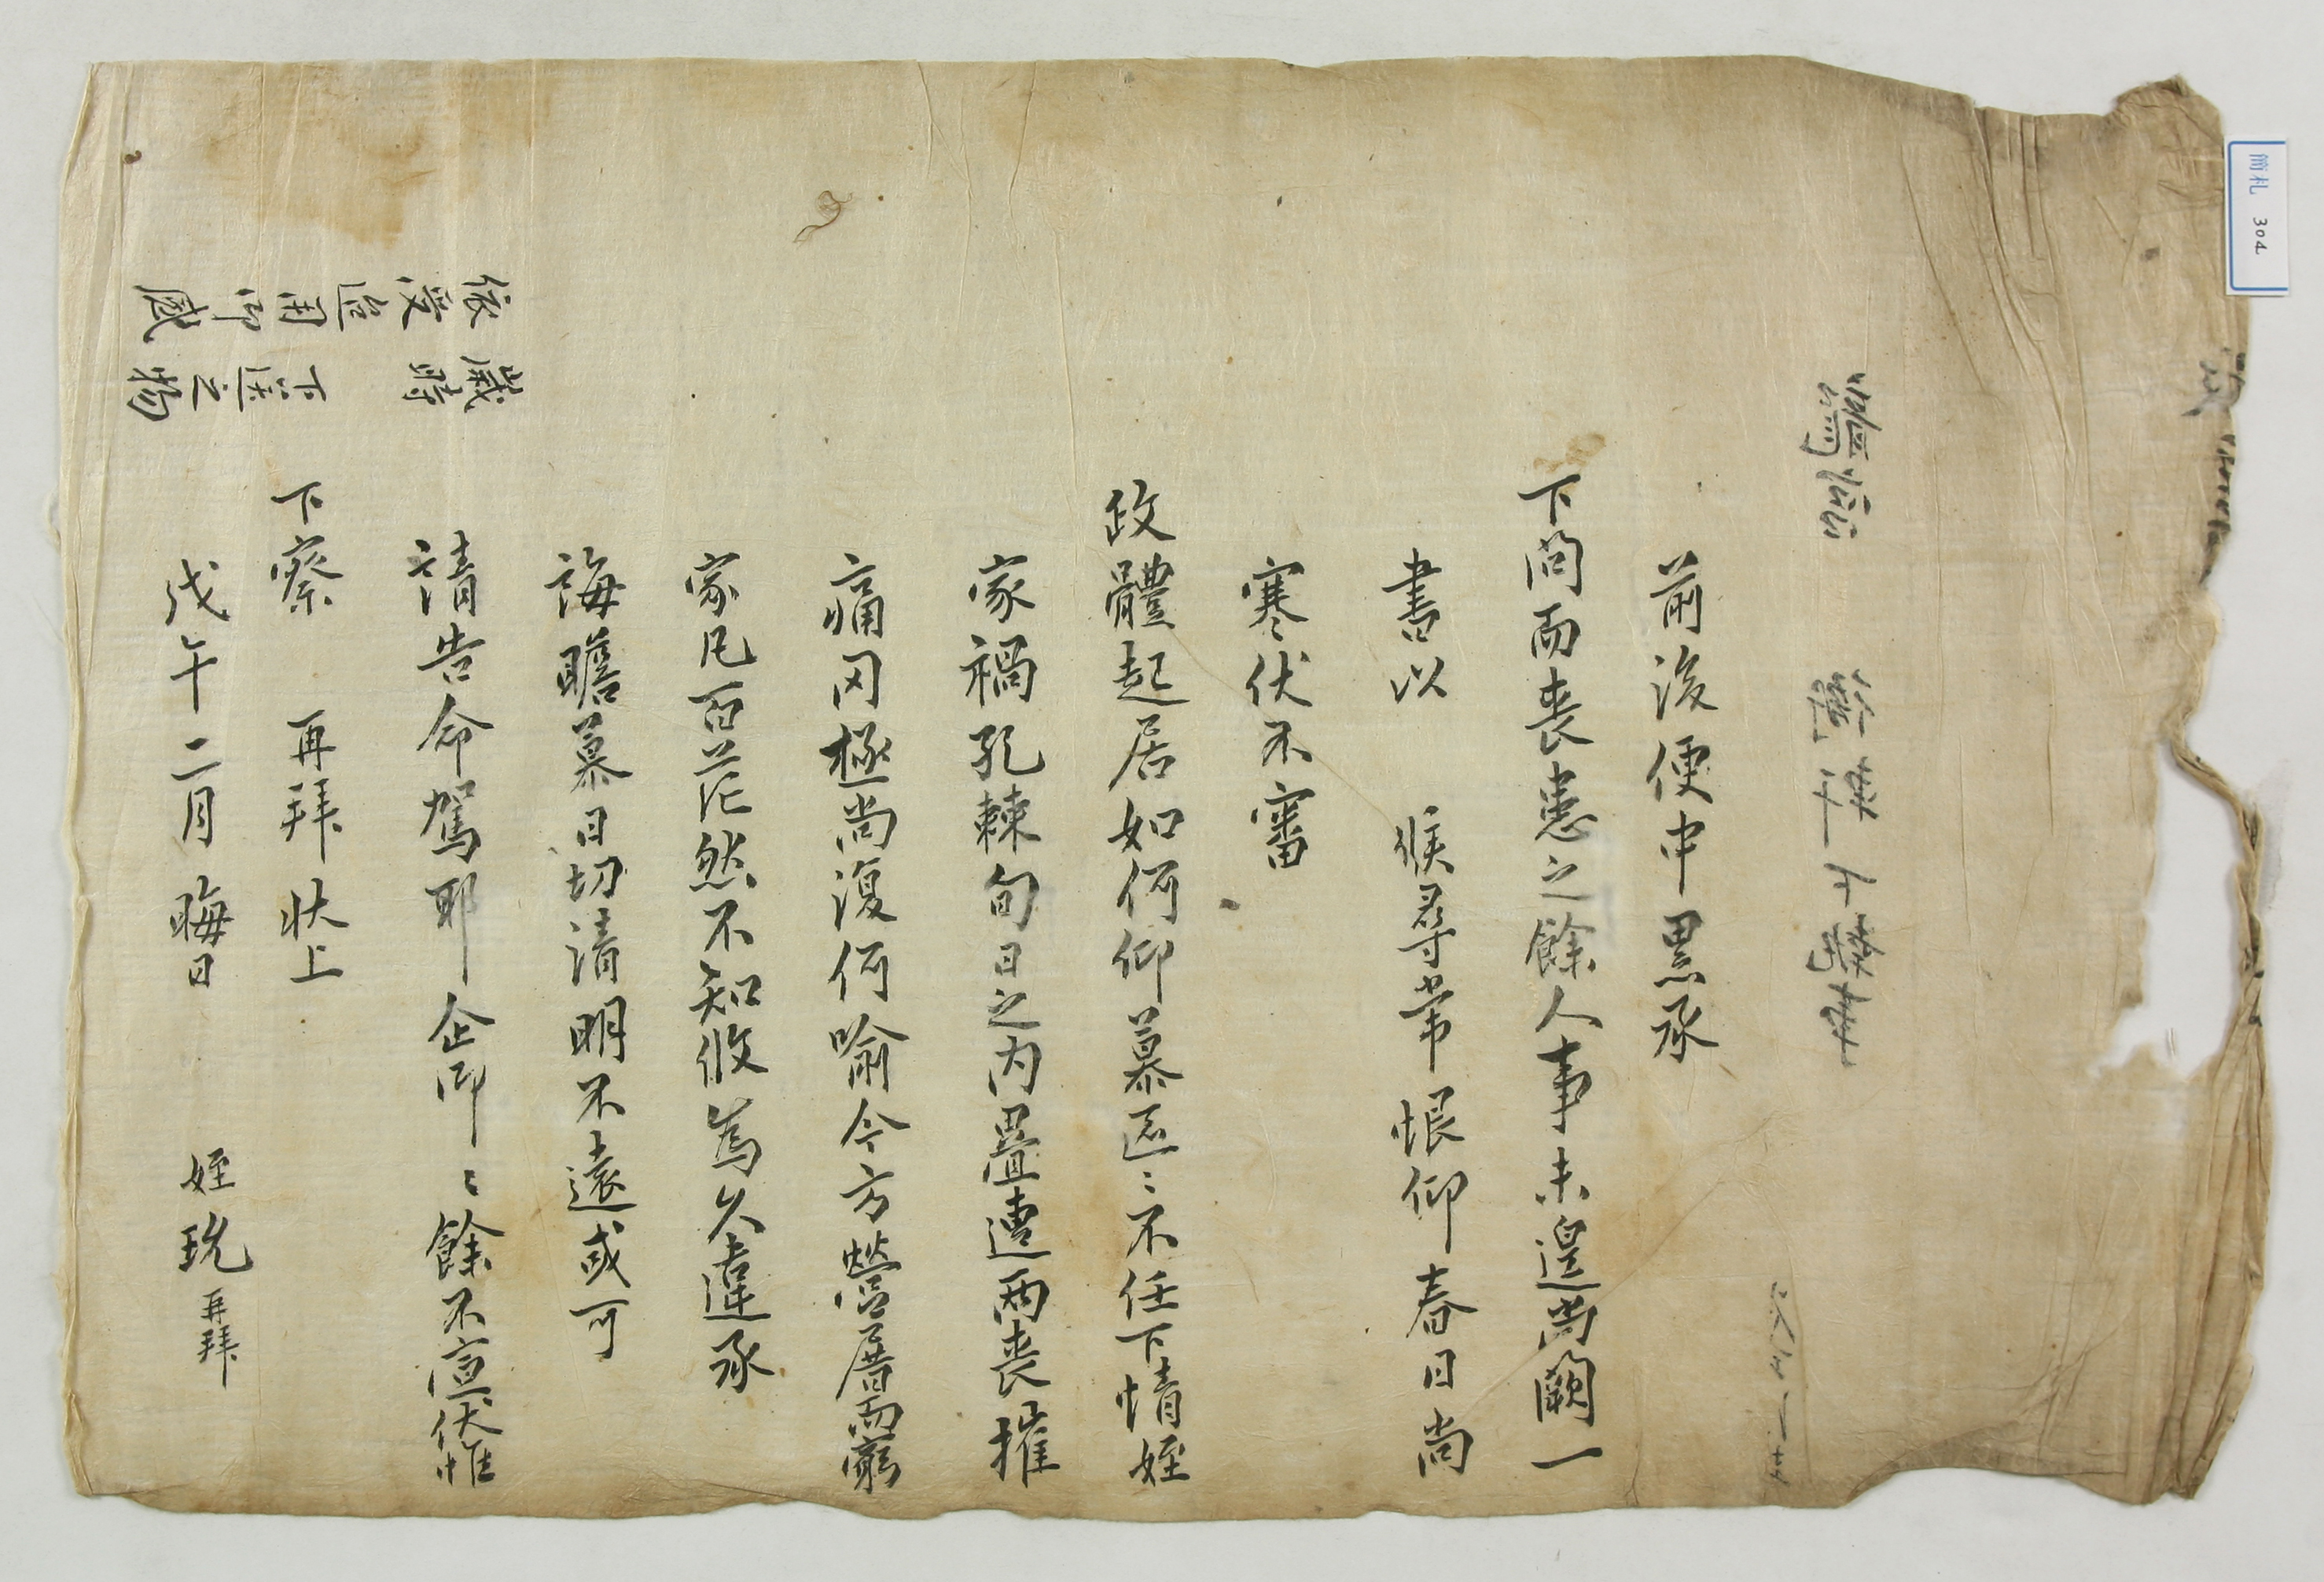 簡札 304
前後便中累承
下問而喪患之餘人事未遑尚闕一
書以 候尋常恨仰春日尚
寒伏不審
政體起居如何仰慕區〻不任下情姪
家禍孔棘旬日之內疊遭兩喪摧
痛罔極尚復何喩今方營厝而窮
家凡百茫然不知攸爲久違承
誨瞻慕日切清明不遠或可
請告命駕耶企仰〻餘不宣伏惟
下察 再拜 狀上
戊午二月晦日 姪珗再拜
歲時
下送之物
依受
用仰感